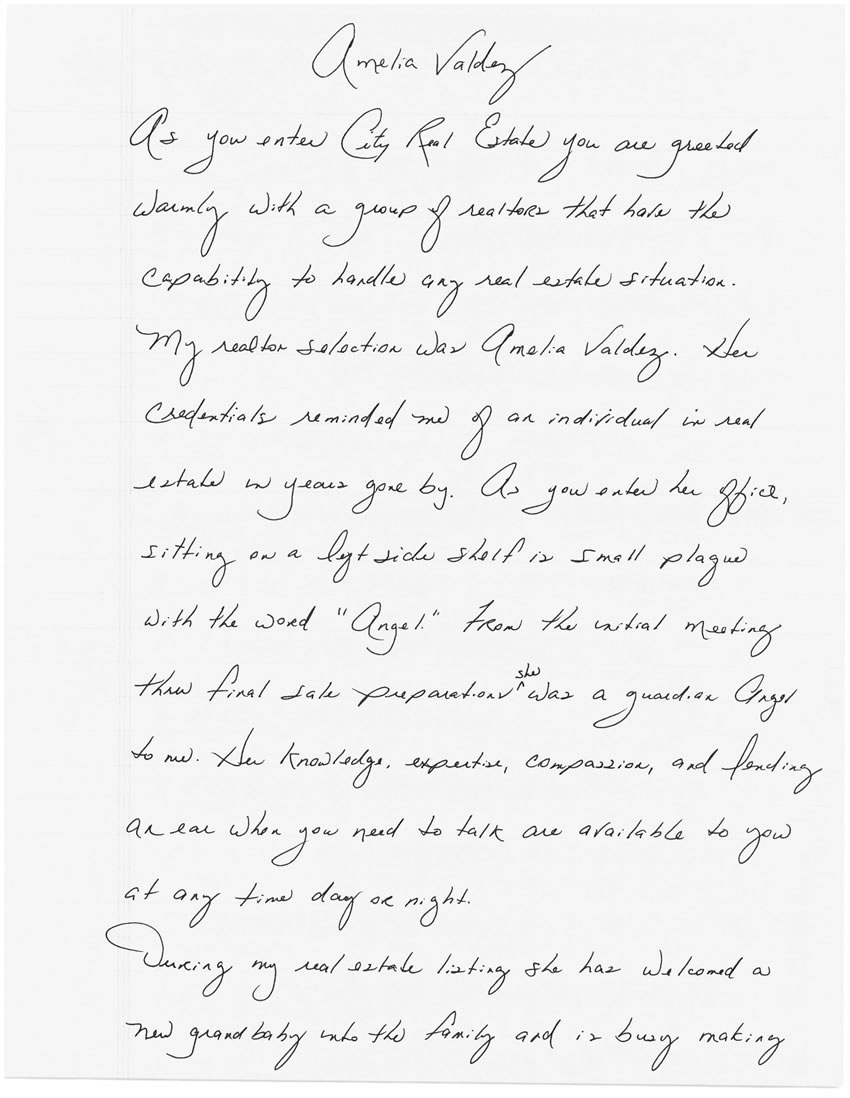 Amelia Valdez
As you enter City Real Estate you are greeted
warmly with a group of realtors that have the
capability to handle any real estate situation.
My realtor selection was Amelia Valdez. Her
credentials reminded me of an individual in real
estate in years gone by. As you enter her office,
sitting on a left side shelf is small plague
with the word "Angel." From the initial meeting
thru final sale preparations she was a guardian Angel
to me. Her knowledge, expertise, compassion, and lending
an ear when you need to talk are available to you
at any time day or night.
During my real estate listing she has welcomed a
new grandbaby into the family and is busy making